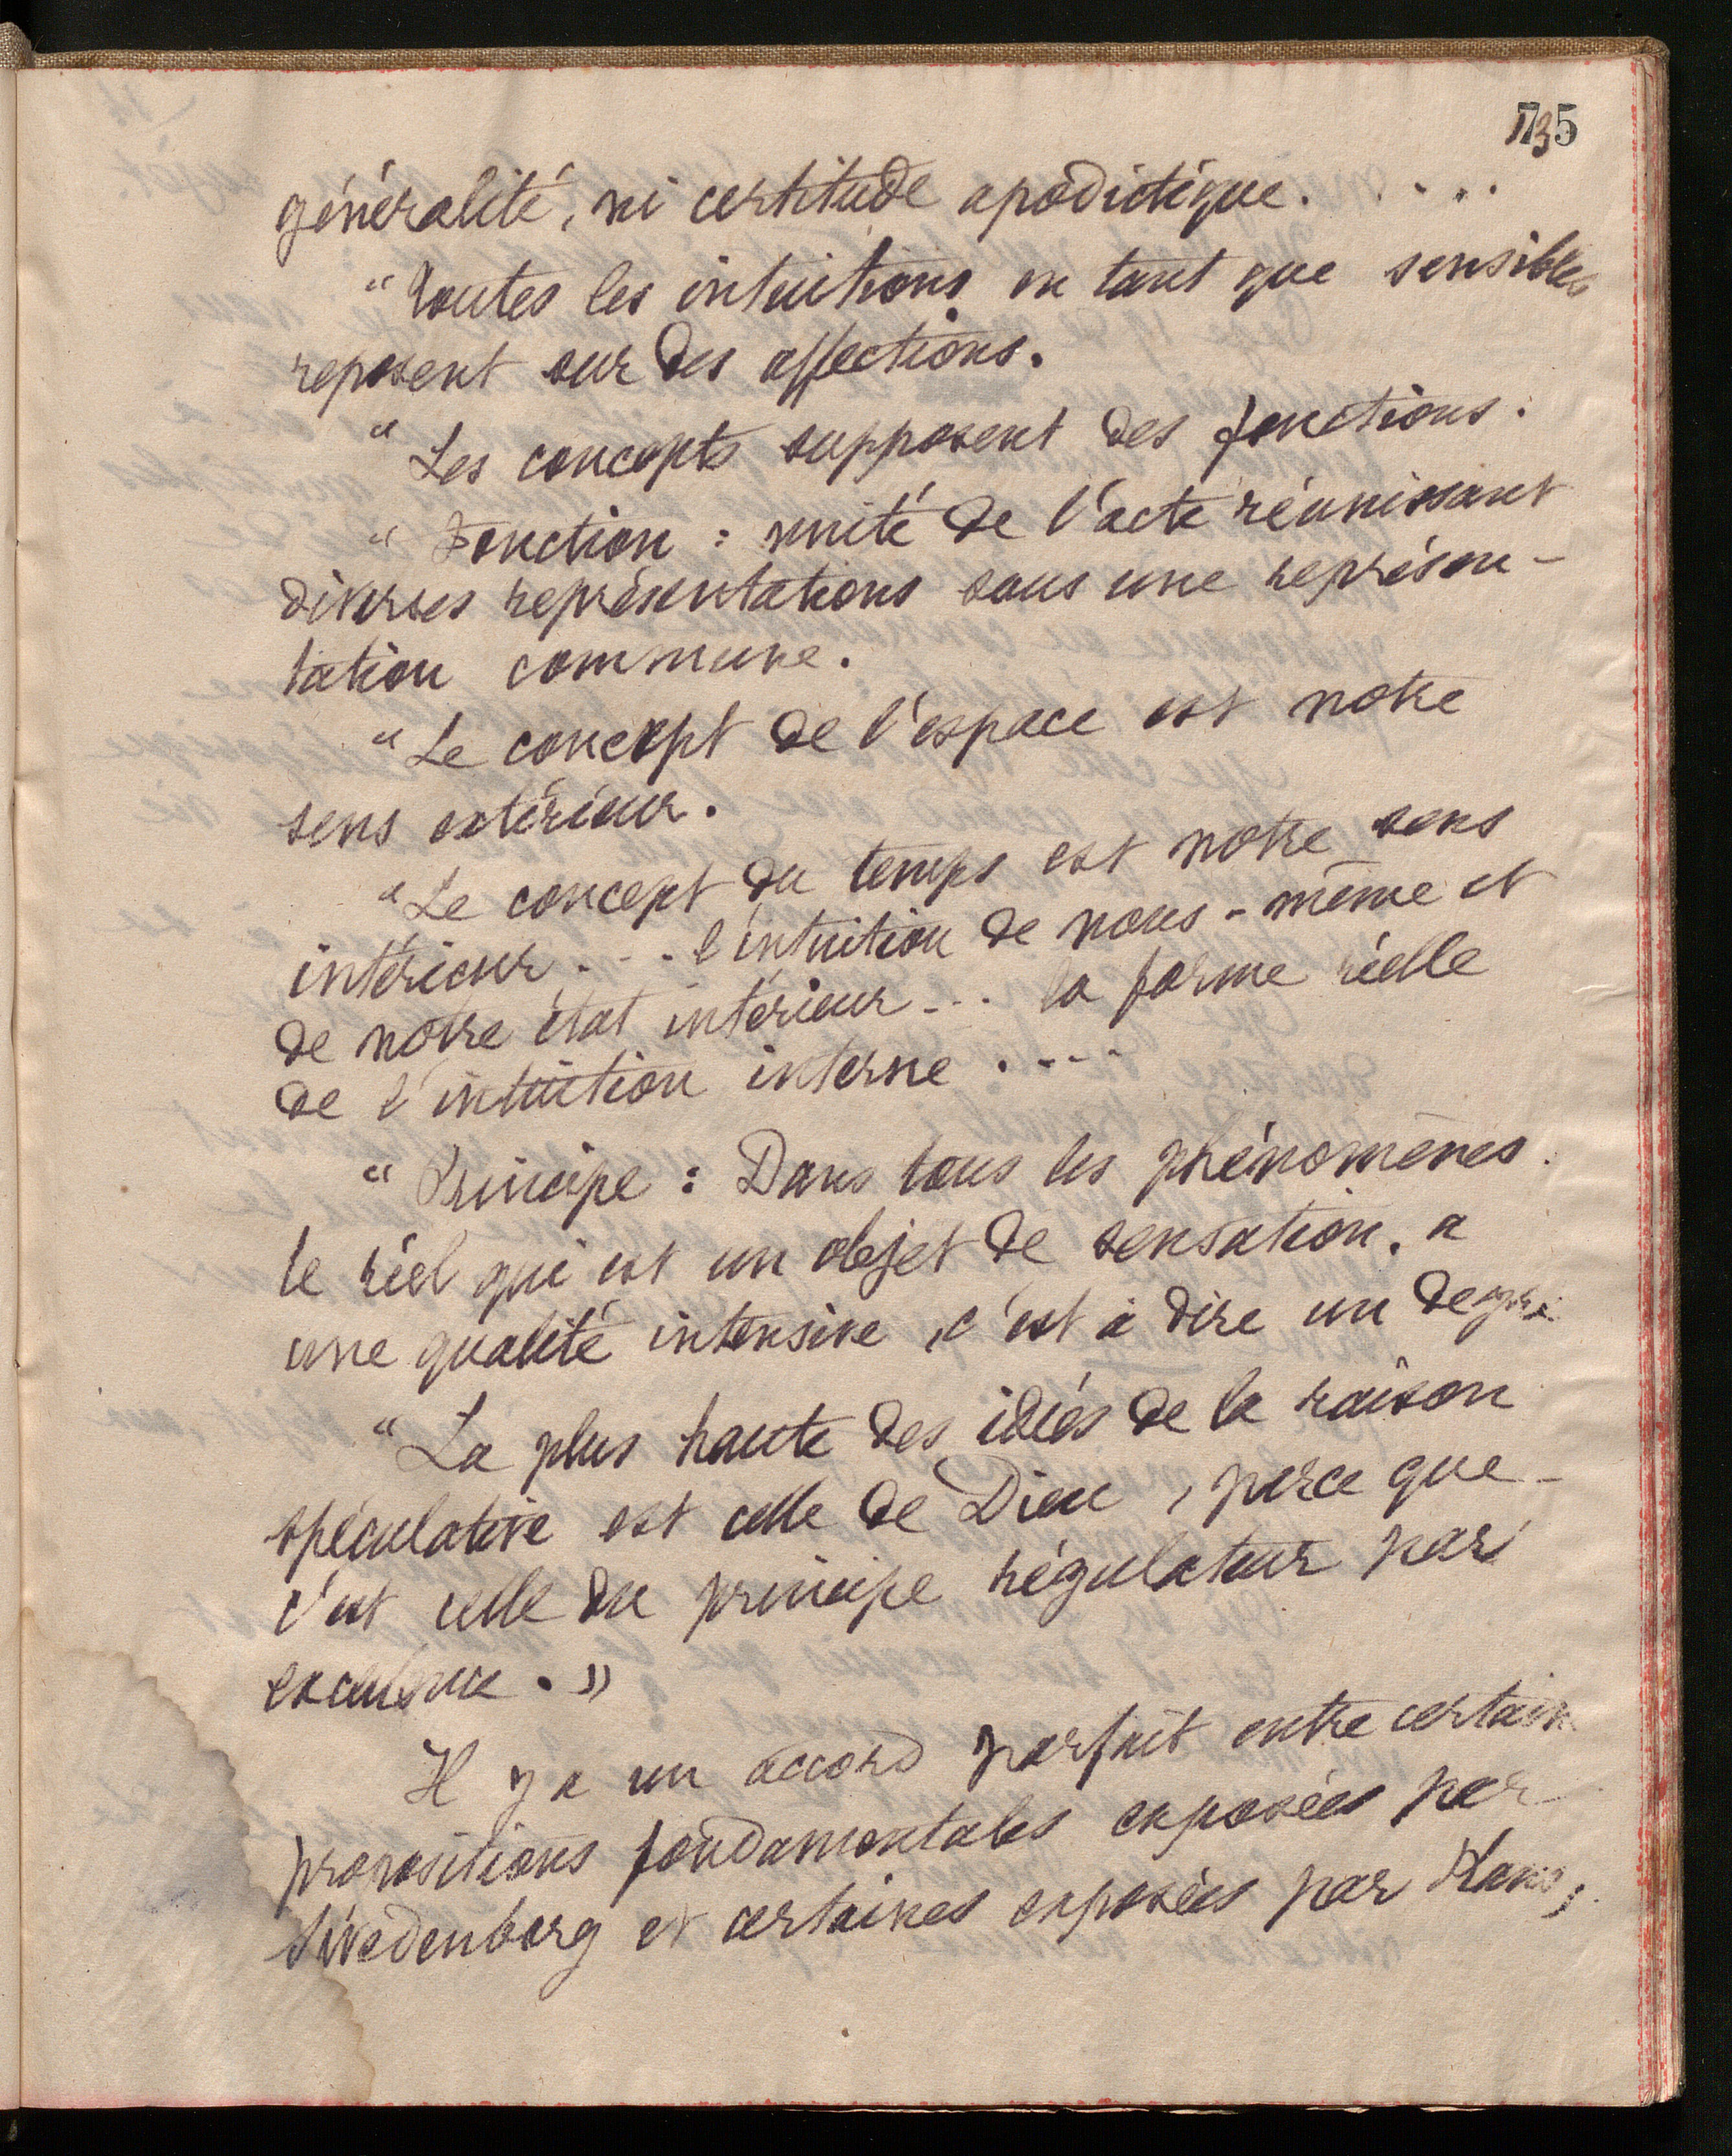 généralité, ni certitude apodictique. . . . .
“Toutes les intuitions en tant que sensibles
reposent sur des affections.
“Les concepts supposent des fonctions.
“Fonction : unité de l'acte réunissant
diverses représentations sous une représen-
tation commune.
“Le concept de l'espace est notre
sens extérieur.
“Le concept du temps est notre sens
intérieur . . . l'intuition de nous-même et
de notre état intérieur . . . la forme réelle
de l'intuition interne . . . .
“Principe : Dans tous les phénomènes
le réel qui est un objet de sensation, a
une qualité intensive, c'est à dire un degré.
“La plus haute des idées de la raison
spéculative est celle de Dieu, parce que
c'est celle du principe régulateur par
excellence.”
Il y a un accord parfait entre certaines
propositions fondamentales exposées par
Swedenborg et certaines exposées par Kant,